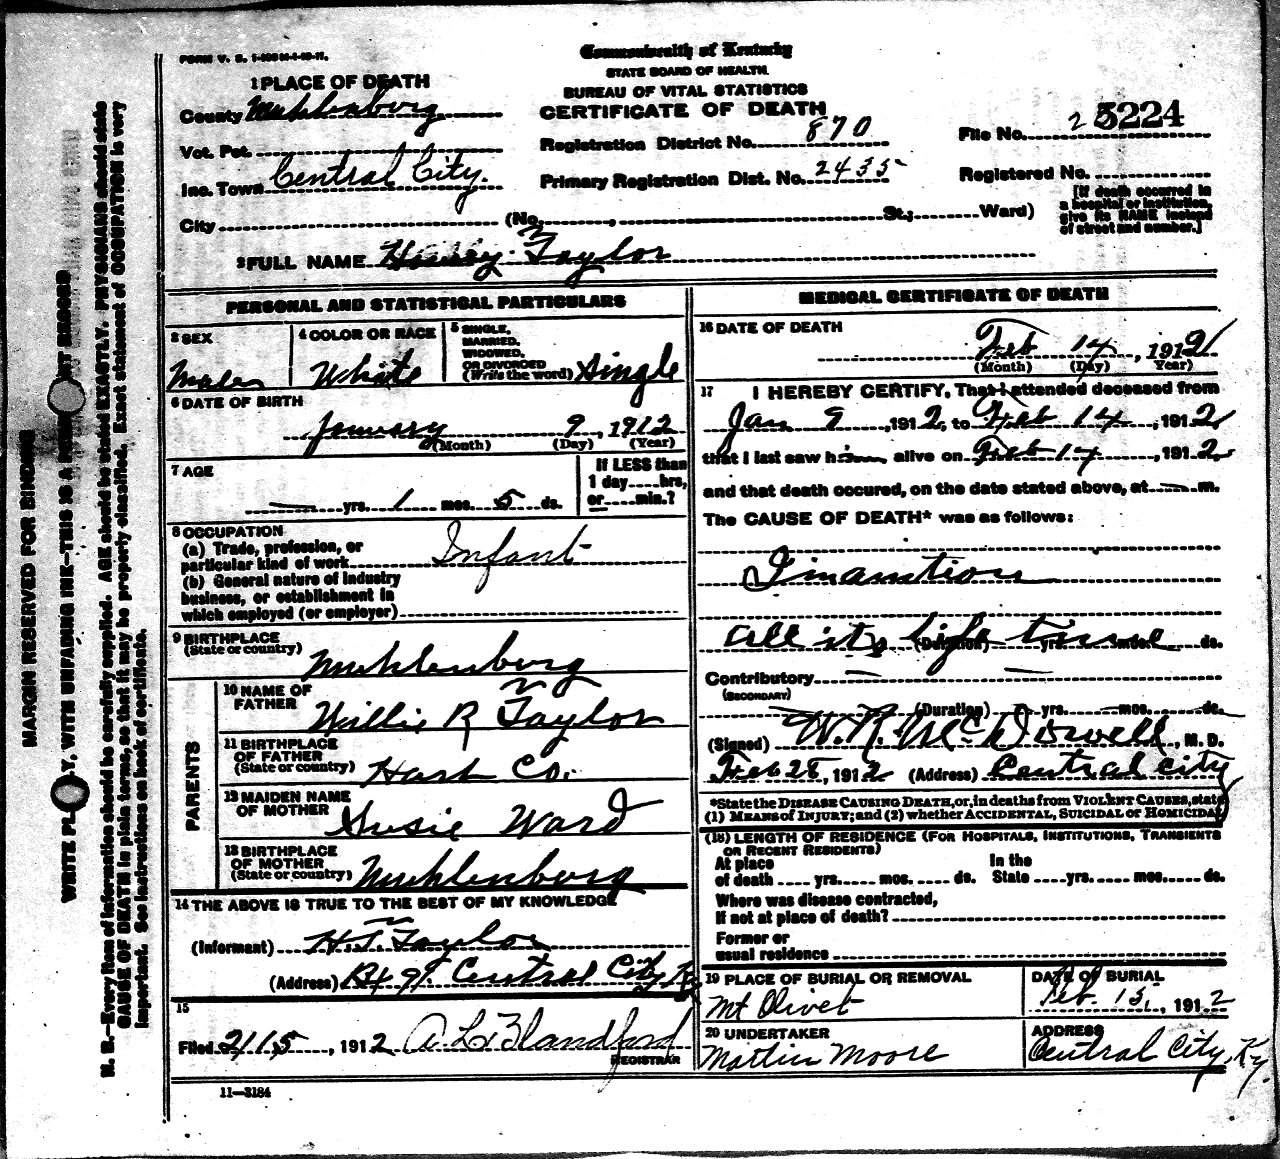 FORM V. S. 1-
Commonwealth of Kentucky
STATE BOARD OF HEALTH.
BUREAU OF VITAL STATISTICS
CERTIFICATE OF DEATH
1 PLACE OF DEATH
County Muhlenburg
Vot. Pct.
Inc. Town Central City.
City (No. , St.; Ward)
Registration District No. 870
Primary Registration Dist. No. 2435
File No. 5224
Registered No.
[If death occurred in
a hospital or institution,
give its NAME instead
of street and number.]
2 FULL NAME Taylor
PERSONAL AND STATISTICAL PARTICULARS
3 SEX
Male
4 COLOR OR RACE
White
5 SINGLE,
MARRIED,
WIDOWED,
OR DIVORCED
(Write the word) Single
6 DATE OF BIRTH
January 9, 1912
(Month) (Day) (Year)
7 AGE
— yrs. 1 mos. 5 ds.
If LESS than
1 day....hrs,
or....min.?
8 OCCUPATION
(a) Trade, profession, or
particular kind of work Infant
(b) General nature of industry
business, or establishment in
which employed (or employer)
9 BIRTHPLACE
(State or country) Muhlenburg
PARENTS
10 NAME OF
FATHER Willie R Taylor
11 BIRTHPLACE
OF FATHER
(State or country) Hart Co.
12 MAIDEN NAME
OF MOTHER Susie Ward
13 BIRTHPLACE
OF MOTHER
(State or country) Muhlenburg
14 THE ABOVE IS TRUE TO THE BEST OF MY KNOWLEDGE
(Informant) H. T. Taylor
(Address) Central City Ky
15
Filed 2/15, 1912 A L Blandford
REGISTRAR
11—3184
MEDICAL CERTIFICATE OF DEATH
16 DATE OF DEATH
Feb 14, 191
(Month) (Day) Year)
17 I HEREBY CERTIFY, That I attended deceased from
Jan 9, 1912, to Feb 14, 1912,
that I last saw him alive on Feb 14, 1912
and that death occured, on the date stated above, at — m.
The CAUSE OF DEATH* was as follows:
Inanition
all its life time
(Duration) yrs. mos. ds.
Contributory —
(SECONDARY)
(Duration) — yrs. — mos. — ds.
(Signed) W. R. McDowell, M. D.
Feb 28, 1912 (Address) Central City
*State the DISEASE CAUSING DEATH, or, in deaths from VIOLENT CAUSES, state
(1) MEANS of INJURY; and (2) whether ACCIDENTAL, SUICIDAL or HOMICIDAL
(18) LENGTH OF RESIDENCE (FOR HOSPITALS, INSTITUTIONS, TRANSIENTS
OR RECENT RESIDENTS)
At place In the
of death .... yrs. .... mos. .... ds. State ....yrs. .... mos. .... ds.
Where was disease contracted,
If not at place of death?
Former or
usual residence
19 PLACE OF BURIAL OR REMOVAL
Mt Olivet
DATE OF BURIAL
Feb. 15, 1912
20 UNDERTAKER
Martin Moore
ADDRESS
Central City, Ky.
MARGIN RESERVED FOR BINDING
WRITE PLAINLY, WITH UNFADING INK—THIS IS A PERMANENT RECORD
N. B.—Every item of information should be carefully supplied. AGE should be stated EXACTLY. PHYSICIANS should state
CAUSE OF DEATH in plain terms, so that it may be properly classified. Exact statement of OCCUPATION is very
important. See instructions on back of certificate.